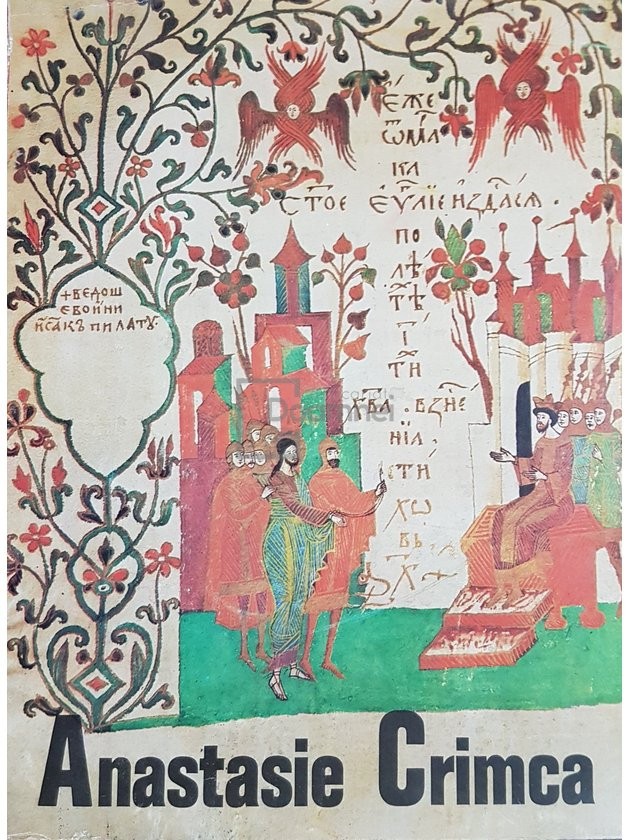 +ВЕДОШ
ЕВОИНИ
ИСАКЪ ПИЛАТУ·
ЕЖЕ
ѾМА
КА
СТОЕ ЕУЛІЕ ИЗДАСѦ ·
ПО
ЛѢ
ТѢ
І
ТИ
ВЗНЕ
НІА ·
СТИ
ХѠ
ВЬ
Anastasie Crimca